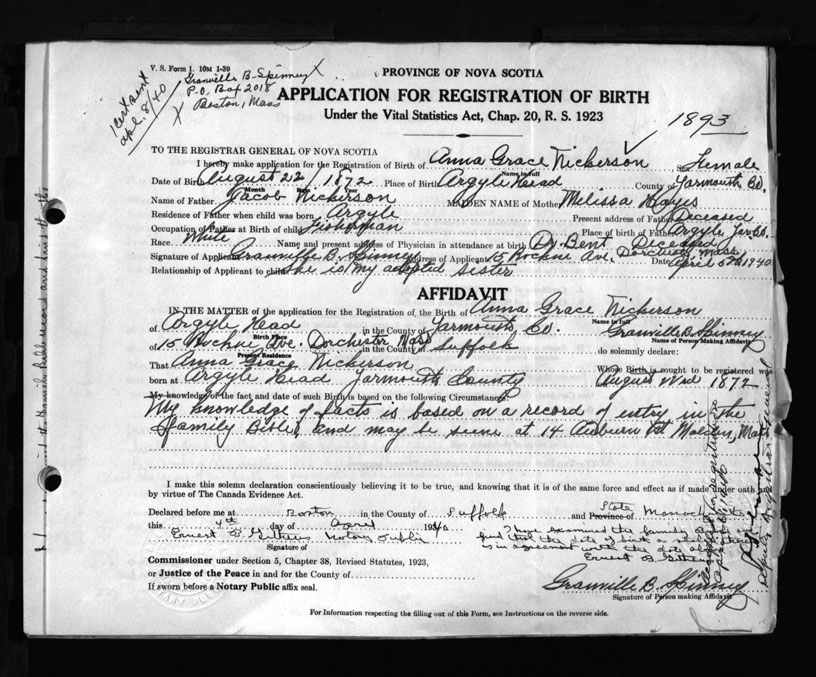 V. S. Form 1. 10M 1-39
Granville B. Spinney X
P.O. Box 2018
X Boston, Mass
1 cert sent
apl. 8/40
PROVINCE OF NOVA SCOTIA
APPLICATION FOR REGISTRATION OF BIRTH
Under the Vital Statistics Act, Chap. 20, R. S. 1923
1893
TO THE REGISTRAR GENERAL OF NOVA SCOTIA
I hereby make application for the Registration of Birth of Anna Grace Nickerson Sex Female
Name in full
Date of Birth August 22 / 1872 Place of Birth Argyle Head County of Yarmouth Co.
Month Date Year
Name of Father Jacob Nickerson MAIDEN NAME of Mother Melissa Hayes
Residence of Father when child was born Argyle Present address of Father Deceased
Occupation of Father at Birth of child Fisherman Place of birth of Father Argyle Yar. Co.
Race White Name and present address of Physician in attendance at birth Dr Bent Deceased
Signature of Applicant Granville B. Spinney Address of Applicant 15 Rockne Ave. Dorchester Mass Date April 5th 1940
Relationship of Applicant to child She is my adopted sister
AFFIDAVIT
IN THE MATTER of the application for the Registration of the Birth of Anna Grace Nickerson
Name in Full
of Argyle Head in the County of Yarmouth Co. Granville B. Spinney
Birth Place Name of Person Making Affidavit
of 15 Rockne Ave. Dorchester Mass in the County of Suffolk do solemnly declare:
Present Residence
That Anna Grace Nickerson Whose Birth is sought to be registered was
born at Argyle Head Yarmouth County August 22nd 1872
My knowledge of the fact and date of such Birth is based on the following Circumstances
My knowledge of facts is based on a record of entry in the
family Bible, and may be seen at 14 Auburn St Malden, Mass
I make this solemn declaration conscientiously believing it to be true, and knowing that it is of the same force and effect as if made under oath and
by virtue of The Canada Evidence Act.
Declared before me at Boston in the County of Suffolk and Province of State Massachusetts
this 4th day of April 1940
I have examined the family Bible and
find that the date of birth as stated
is in agreement with the date above
Ernest B. Notary Public
Signature of
Ernest B.
Commissioner under Section 5, Chapter 38, Revised Statutes, 1923,
or Justice of the Peace in and for the County of
Granville B. Spinney
If sworn before a Notary Public affix seal.
Signature of Person making Affidavit
For Information respecting the filling out of this Form, see Instructions on the reverse side.